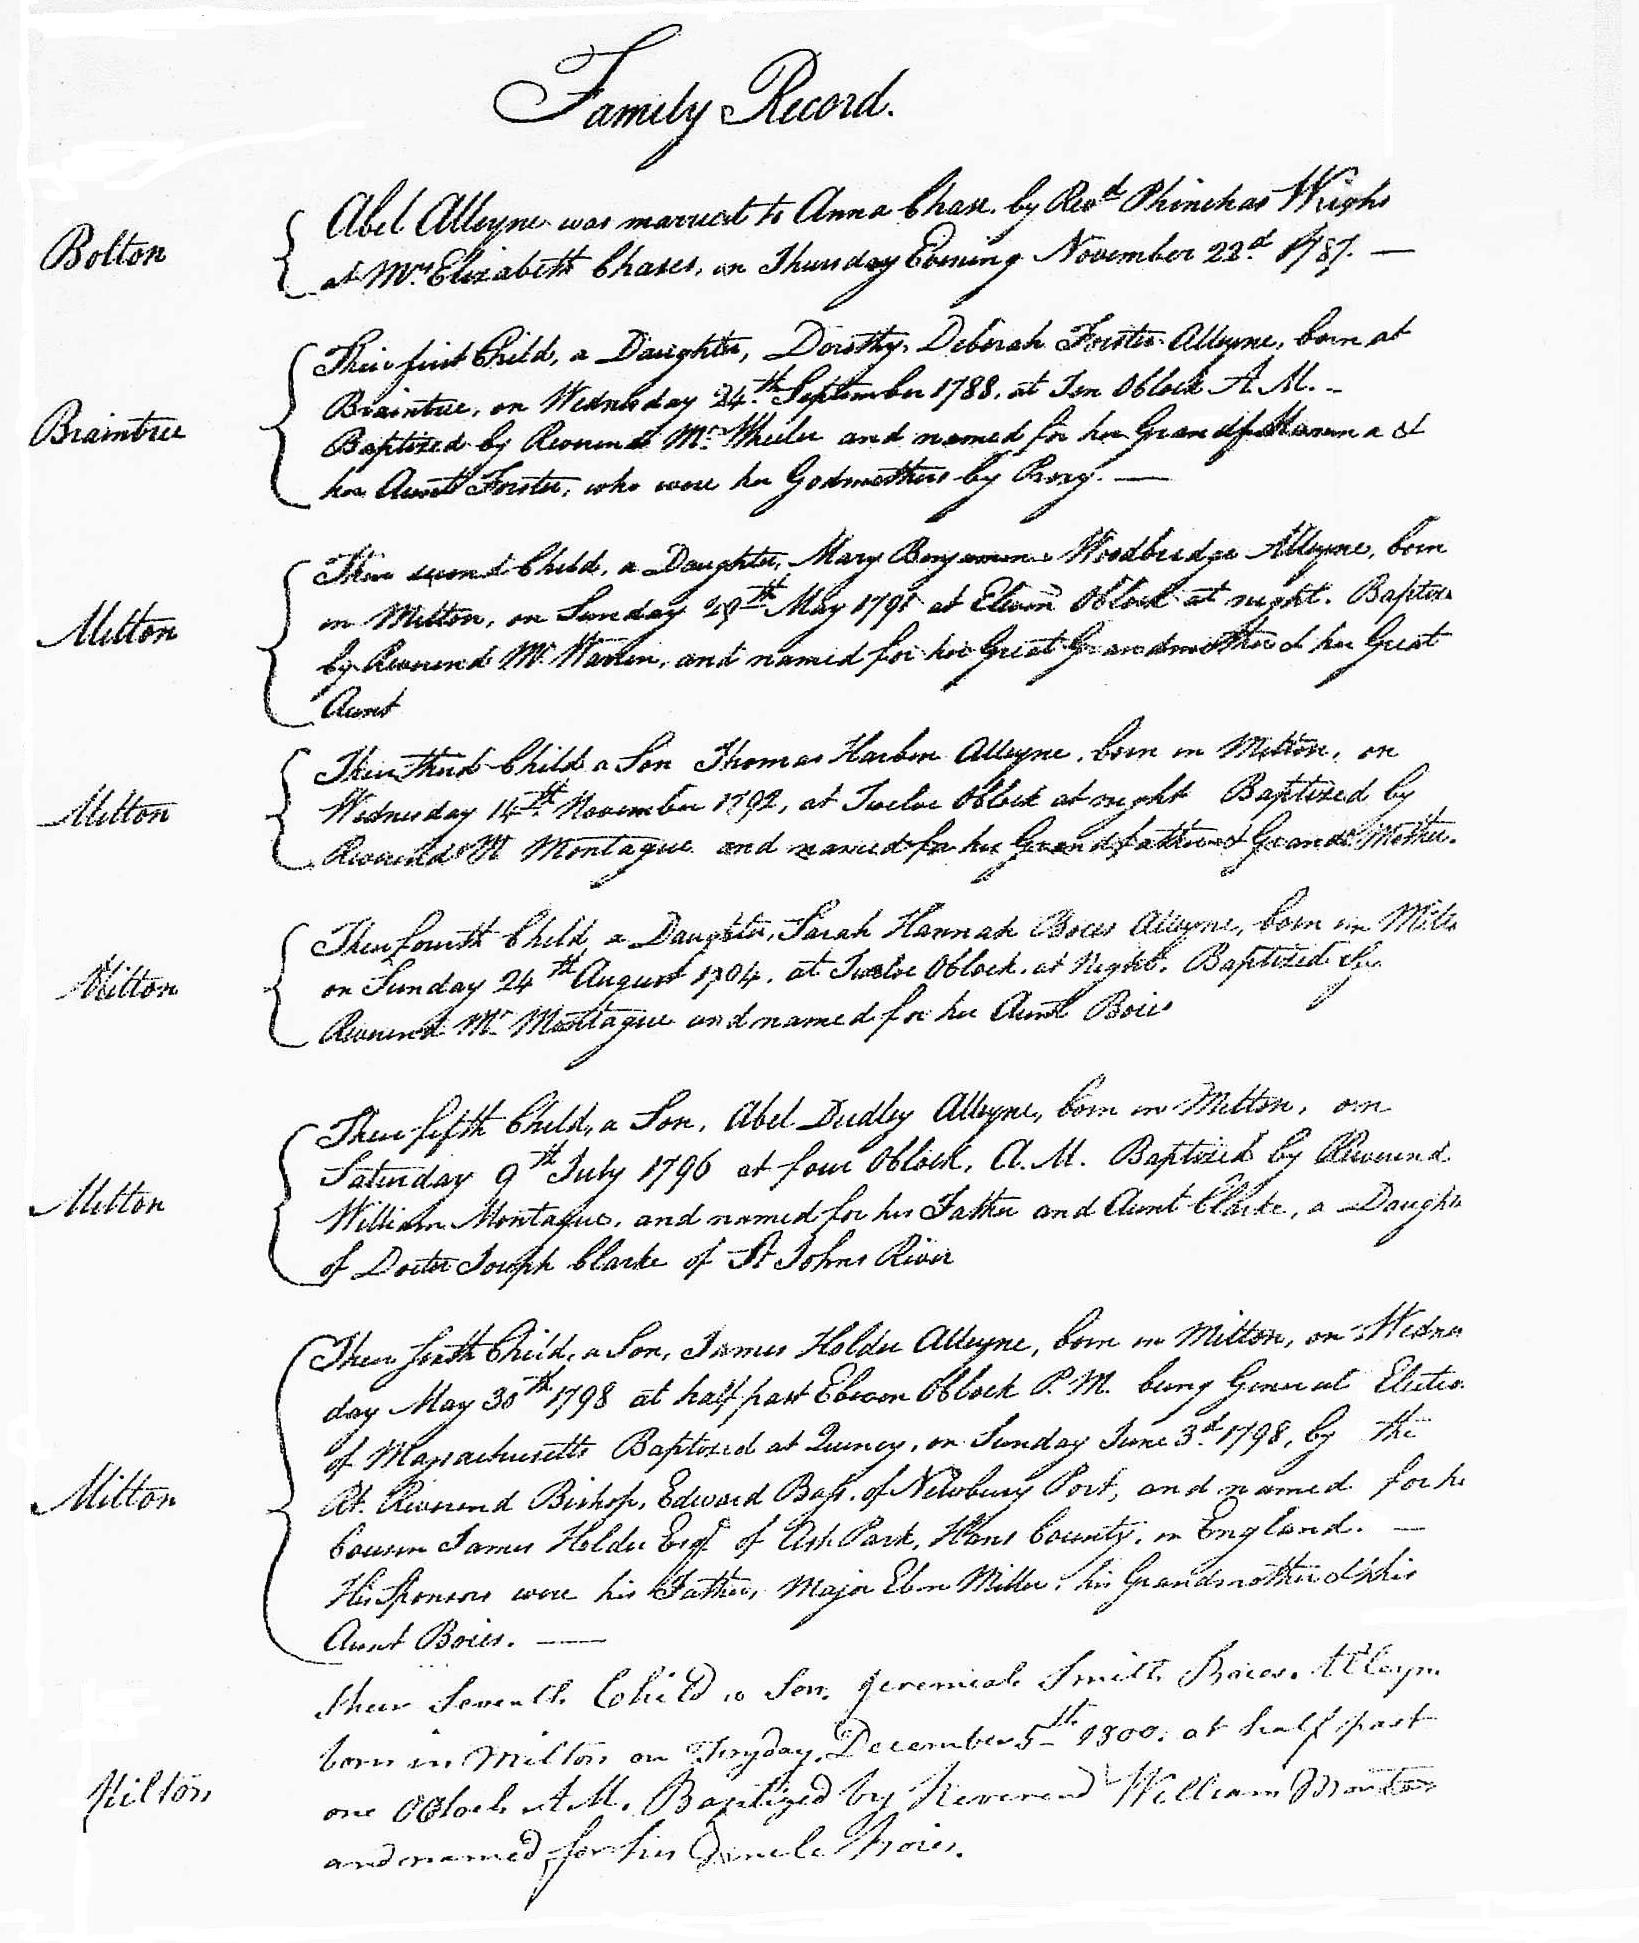 Family Record.
Bolton
Abel Alleyne was married to Anna Chase. by Revd. Phinehas Wright
at Mrs. Elizabeth Chases, on Thursday Evening November 22d. 1787. —
Braintree
Their first Child, a Daughter, Dorothy Deborah Forster Alleyne, born at
Braintree, on Wednesday 24th. September 1788, at Ten OClock A.M. -
Baptized by Reverend Mr. Wheeler and named for her Grandmamma &
her Aunt Forster, who were her Godmothers by Proxy. —
Milton
Their second Child, a Daughter, Mary Benjamin Woodbridge Alleyne, born
in Milton, on Sunday 29th May 1791 at Eleven OClock at night. Baptize
by Reverend Mr. Warren, and named for her Great Grandmother & her Great
Aunt
Milton
Their third Child a Son Thomas Harbin Alleyne, born in Milton, on
Wednesday 14th. November 1792, at Twelve OClock at night Baptized by
Reverend Mr Montague and named for his Grandfather & Grand Mother.
Milton
Their fourth Child, a Daughter, Sarah Hannah Boies Alleyne, born in Milto
on Sunday 24th August 1794. at Twelve OClock. at Night. Baptized by
Reverend Mr Montague and named for her Aunt Boies
Milton
Their fifth Child, a Son, Abel Dudley Alleyne, born in Milton, on
Saturday 9th July 1796 at four OClock, A.M. Baptized by Reverend
William Montague, and named for his Father and Aunt Clarke, a Daughte
of Docter Joseph Clarke of St Johns River
Milton
Their sixth Child, a Son, James Holder Alleyne, born in Milton, on Wednes
day May 30th 1798 at half past Eleven OClock P.M. being General Electio
of Massachusetts Baptized at Quincy, on Sunday June 3d. 1798, by the
Rt. Reverend Bishop, Edward Bass. of Newbury Port, and named for hi
Cousin James Holder Esqr. of Ash Park, Hans County, in England. —
His Sponsors were his Father, Major Eben Miller, his Grandmother & his
Aunt Boies. —
Milton
their Seventh Child a Son. Jeremiah Smith Boies. Alleyn
born in Milton on Fryday, December 5th 1800. at half past
one OClock A.M. Baptized by Reverend William Montag
and named for his Uncle Boies.